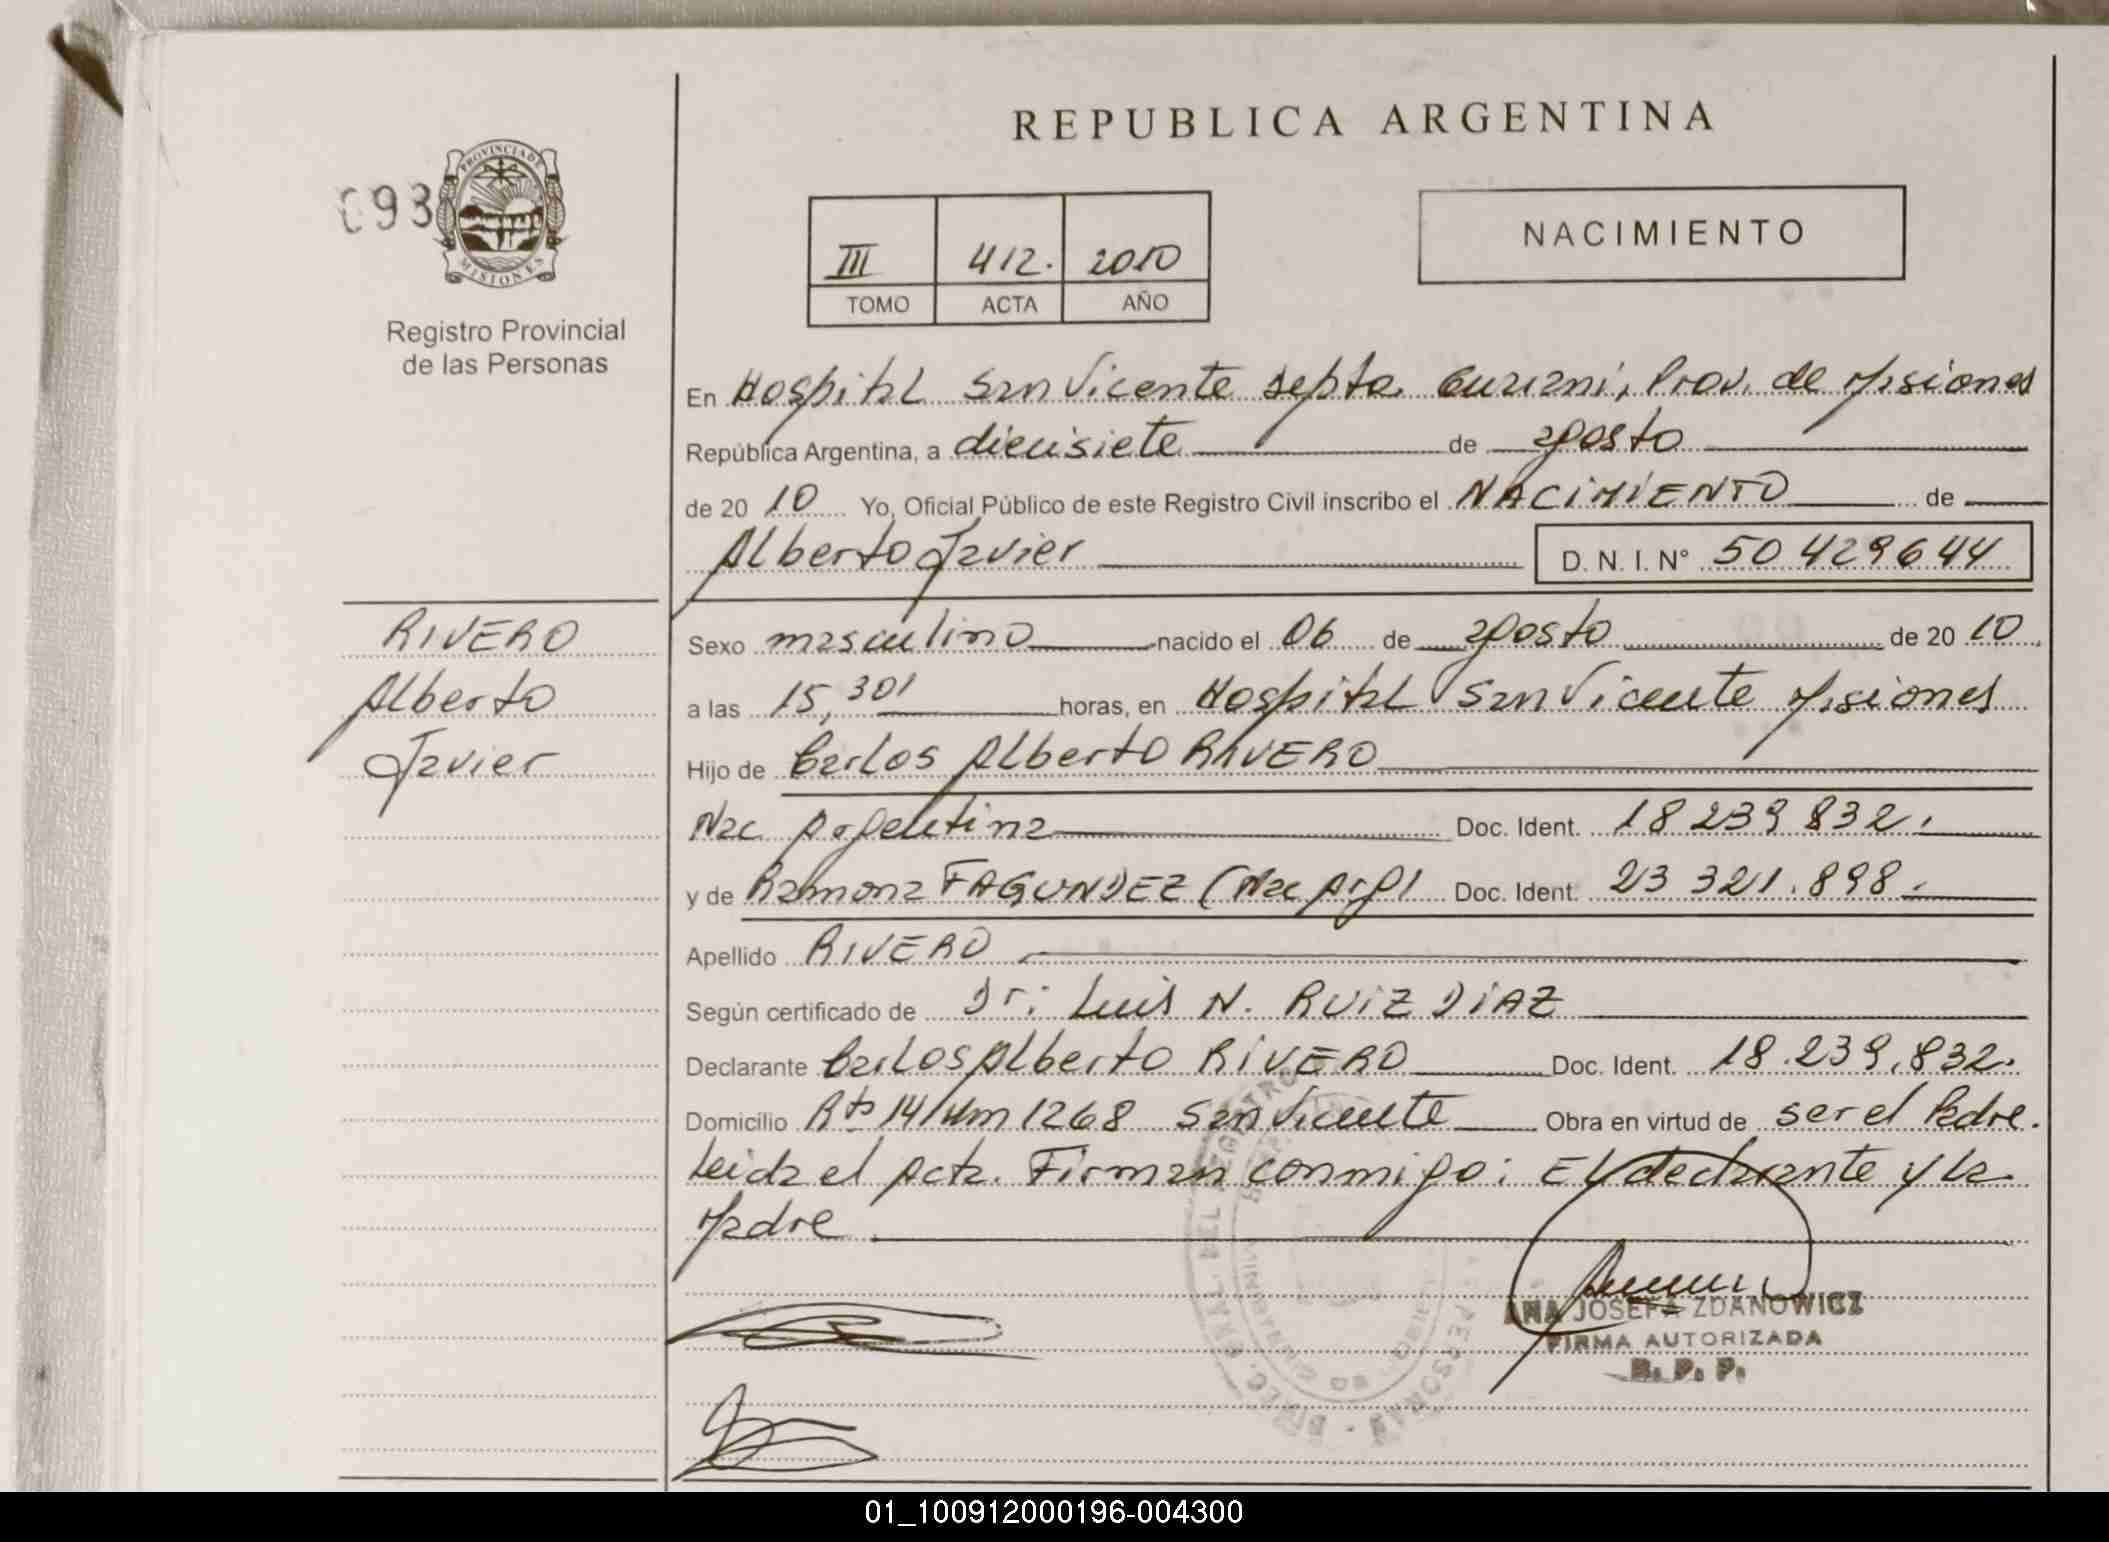 REPUBLICA ARGENTINA
093
PROVINCIA DE MISIONES
Registro Provincial
de las Personas
III 412. 2010
TOMO ACTA AÑO
NACIMIENTO
En Hospital San Vicente Depto. Guarani, Prov. de Misiones
República Argentina, a diecisiete de agosto
de 20 10 Yo, Oficial Público de este Registro Civil inscribo el NACIMIENTO de
Alberto Javier D. N. I. N° 50 429644
RIVERO
Alberto
Javier
Sexo masculino nacido el 06 de agosto de 20 10
a las 15,30 horas, en Hospital San Vicente Misiones
Hijo de Carlos Alberto RIVERO
Nac Argentina Doc. Ident. 18 239 832.
y de Ramona FAGUNDEZ (Nac Arg) Doc. Ident. 23 321.898.
Apellido RIVERO
Según certificado de Dr: Luis N. RUIZ DIAZ
Declarante Carlos Alberto RIVERO Doc. Ident. 18.239.832.
Domicilio Rta 14 Km 1268 San Vicente Obra en virtud de ser el Padre.
Leida el Acta. Firman conmigo: El declarante y la
Madre
ANA JOSEFA ZDANOWICZ
FIRMA AUTORIZADA
R. P. P.
01_100912000196-004300